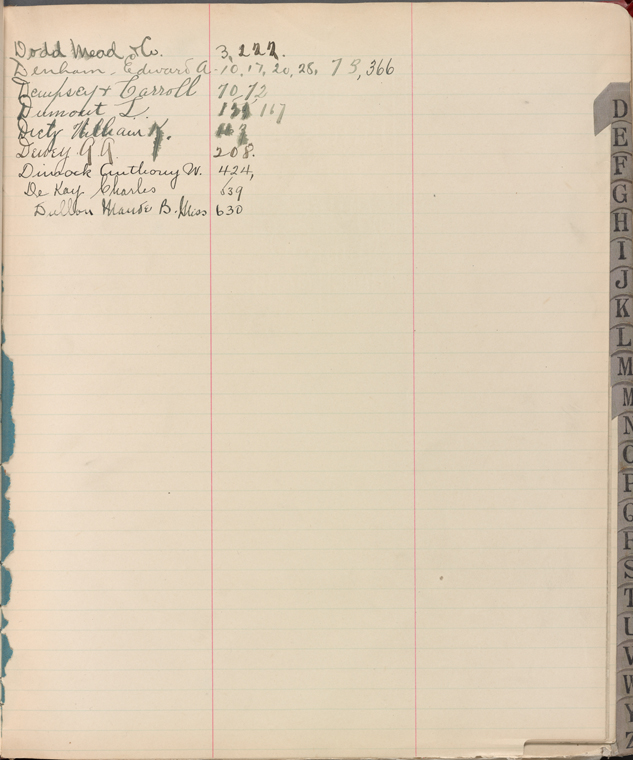 Dodd Mead & Co. 3, 222.
Denham, Edward A. 10, 17, 20, 28, 73, 366
Dempsey & Carroll 70, 72
Dumont L. 167
William K.
Dewey A A 208.
Dimock Anthony W. 424,
De Kay Charles 639
Maude B. Miss 630
D
E
F
G
H
I
J
K
L
M
M
N
O
P
Q
R
S
T
U
V
W
Y
Z